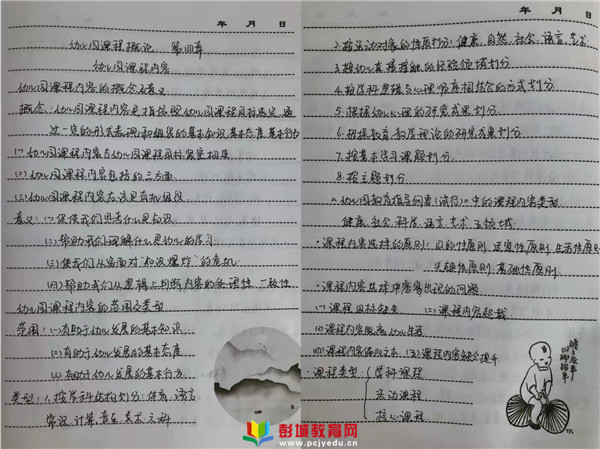 年 月 日
幼儿园课程概论 第四章
幼儿园课程内容
幼儿园课程内容的概念及意义
概念:幼儿园课程内容是指依照幼儿园课程目标选定,通
过一定的形式表现和组织的基本知识基本态度基本行为
(一)幼儿园课程内容与幼儿园课程目标密切相连
(二)幼儿园课程内容包括的三方面
(三)幼儿园课程内容应该具有和组织
意义:(一)促使我们思考什么是知识
(二)帮助我们理解什么是幼儿的学习
(三)使我们从容面对“知识爆炸”的危机
(四)帮助我们从逻辑上判断内容的条理性、一致性
幼儿园课程内容的范围及类型
范围:(一)有助于幼儿发展的基本知识
(二)有助于幼儿发展的基本态度
(三)有助于幼儿发展的基本行为
类型:1.按学科结构划分:体育、语言
常识、计算、音乐、美术六科
年 月 日
2.按活动对象的性质划分:健康、自然、社会、语言、艺术
3.按幼儿直接接触的经验领域划分
4.按学科逻辑与心理顺序相结合的方式划分
5.根据幼儿心理的研究成果划分
6.根据教育教学理论的研究成果划分
7.按基本学习课题划分
8.按主题划分
《幼儿园教育指导纲要(试行)》中的课程内容类型
健康、社会、科学、语言、艺术五领域
·课程内容选择的原则:目的性原则、适宜性原则、生活性原则
兴趣性原则、基础性原则
·课程内容选择中容易出现的问题
(一)课程目标缺失 (二)课程内容超载
(三)课程内容脱离幼儿生活
(四)课程内容 (五)课程内容缺少
·课程类型:学科课程
活动课程
核心课程
彭城教育网
www.pcjyedu.cn